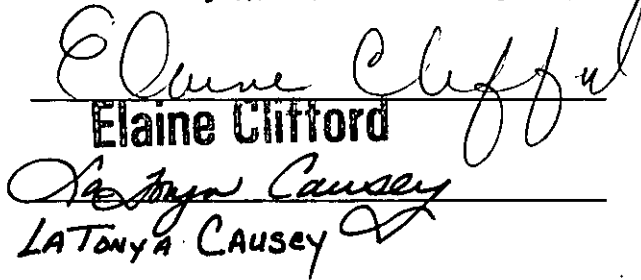 Elaine Clifford
Elaine Clifford
LaTonya Causey
LATONYA CAUSEY